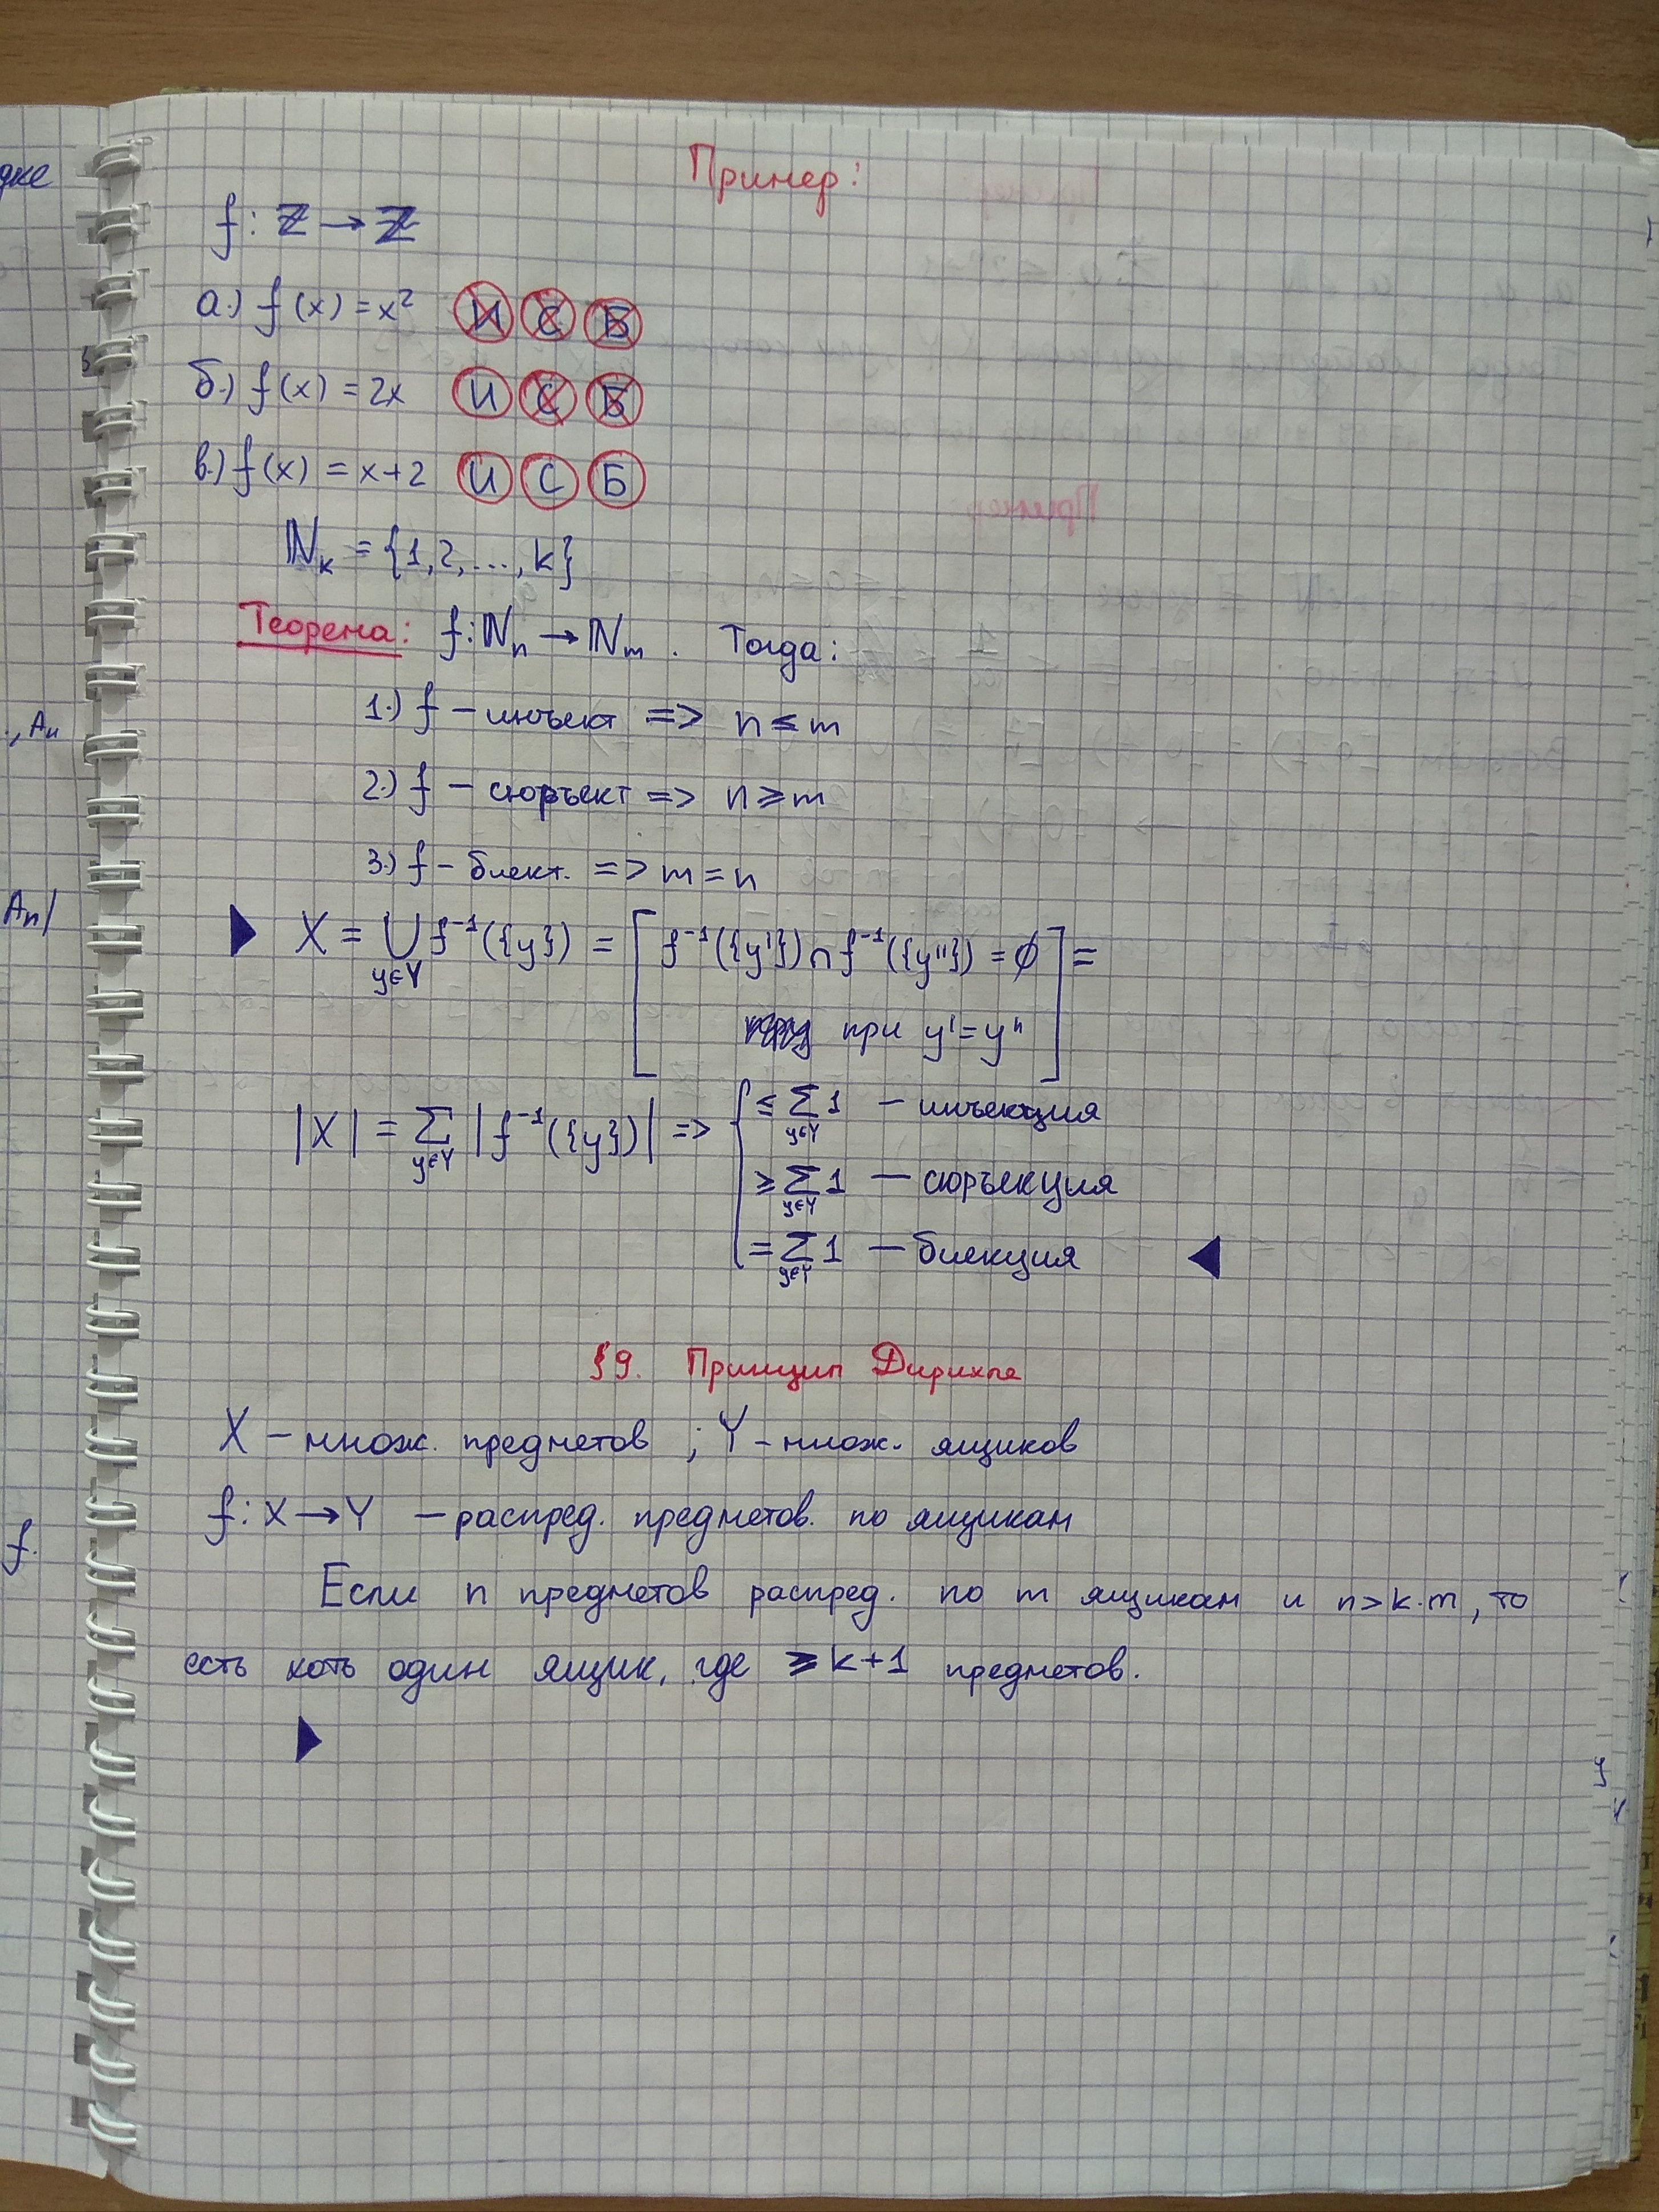 Пример:
f: ℤ → ℤ
а.) f(x) = x² И С Б
б.) f(x) = 2x И С Б
в.) f(x) = x+2 И С Б
ℕₖ = {1,2,...,k}
Теорема: f: ℕₙ → ℕₘ. Тогда:
1.) f – инъект => n ≤ m
2.) f – сюръект => n ≥ m
3.) f – биект. => m = n
X = ⋃ f⁻¹({y}) = [ f⁻¹({y'}) ∩ f⁻¹({y''}) = ∅ ] =
y∈Y
при y' = y''
|X| = ∑_{y∈Y} |f⁻¹({y})| => { ≤ ∑_{y∈Y} 1 – инъекция
≥ ∑_{y∈Y} 1 – сюръекция
= ∑_{y∈Y} 1 – биекция
§9. Принцип Дирихле
X – множ. предметов ; Y – множ. ящиков
f: X → Y – распред. предметов. по ящикам
Если n предметов распред. по m ящикам и n > k·m, то
есть хоть один ящик, где ≥ k+1 предметов.
дке
., Aₙ
Aₙ|
f.